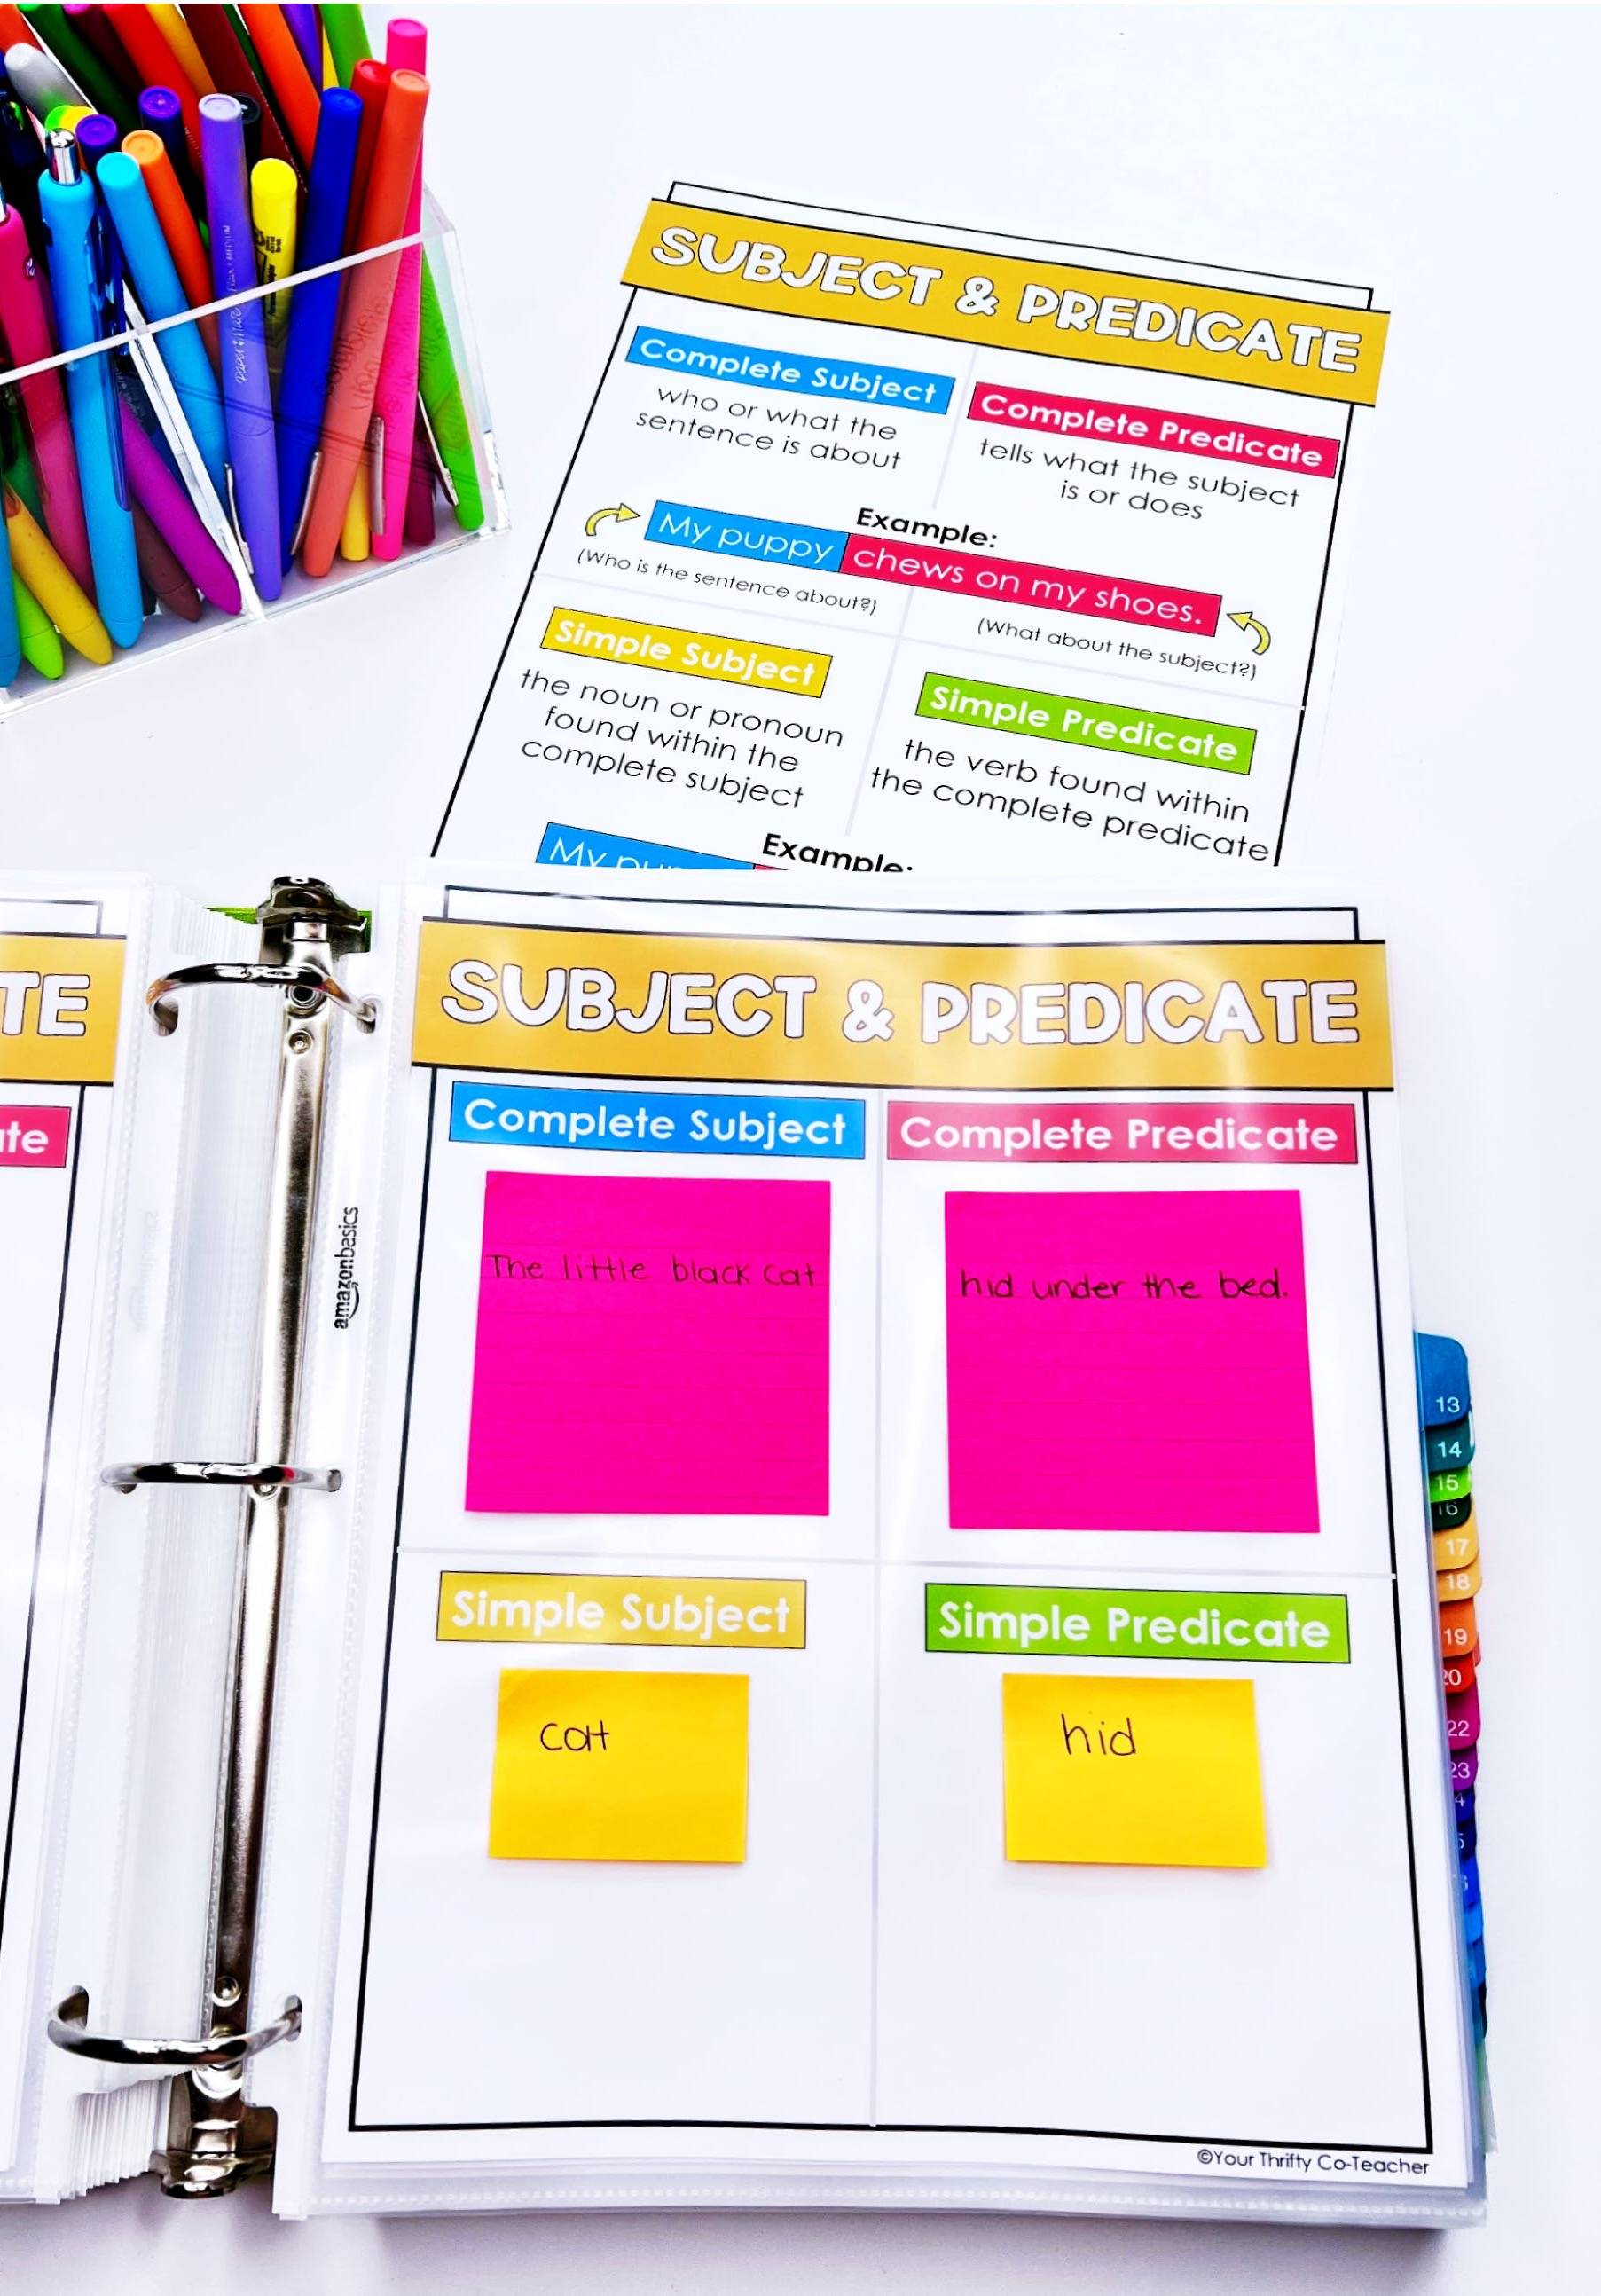 SUBJECT & PREDICATE
Complete Subject
who or what the
sentence is about
Complete Predicate
tells what the subject
is or does
Example:
My puppy chews on my shoes.
(Who is the sentence about?)
(What about the subject?)
Simple Subject
the noun or pronoun
found within the
complete subject
Simple Predicate
the verb found within
the complete predicate
Example:
My
TE
te
amazonbasics
SUBJECT & PREDICATE
Complete Subject
Complete Predicate
The little black cat
hid under the bed.
Simple Subject
Simple Predicate
cat
hid
13
14
15
16
17
18
19
20
22
23
©Your Thrifty Co-Teacher